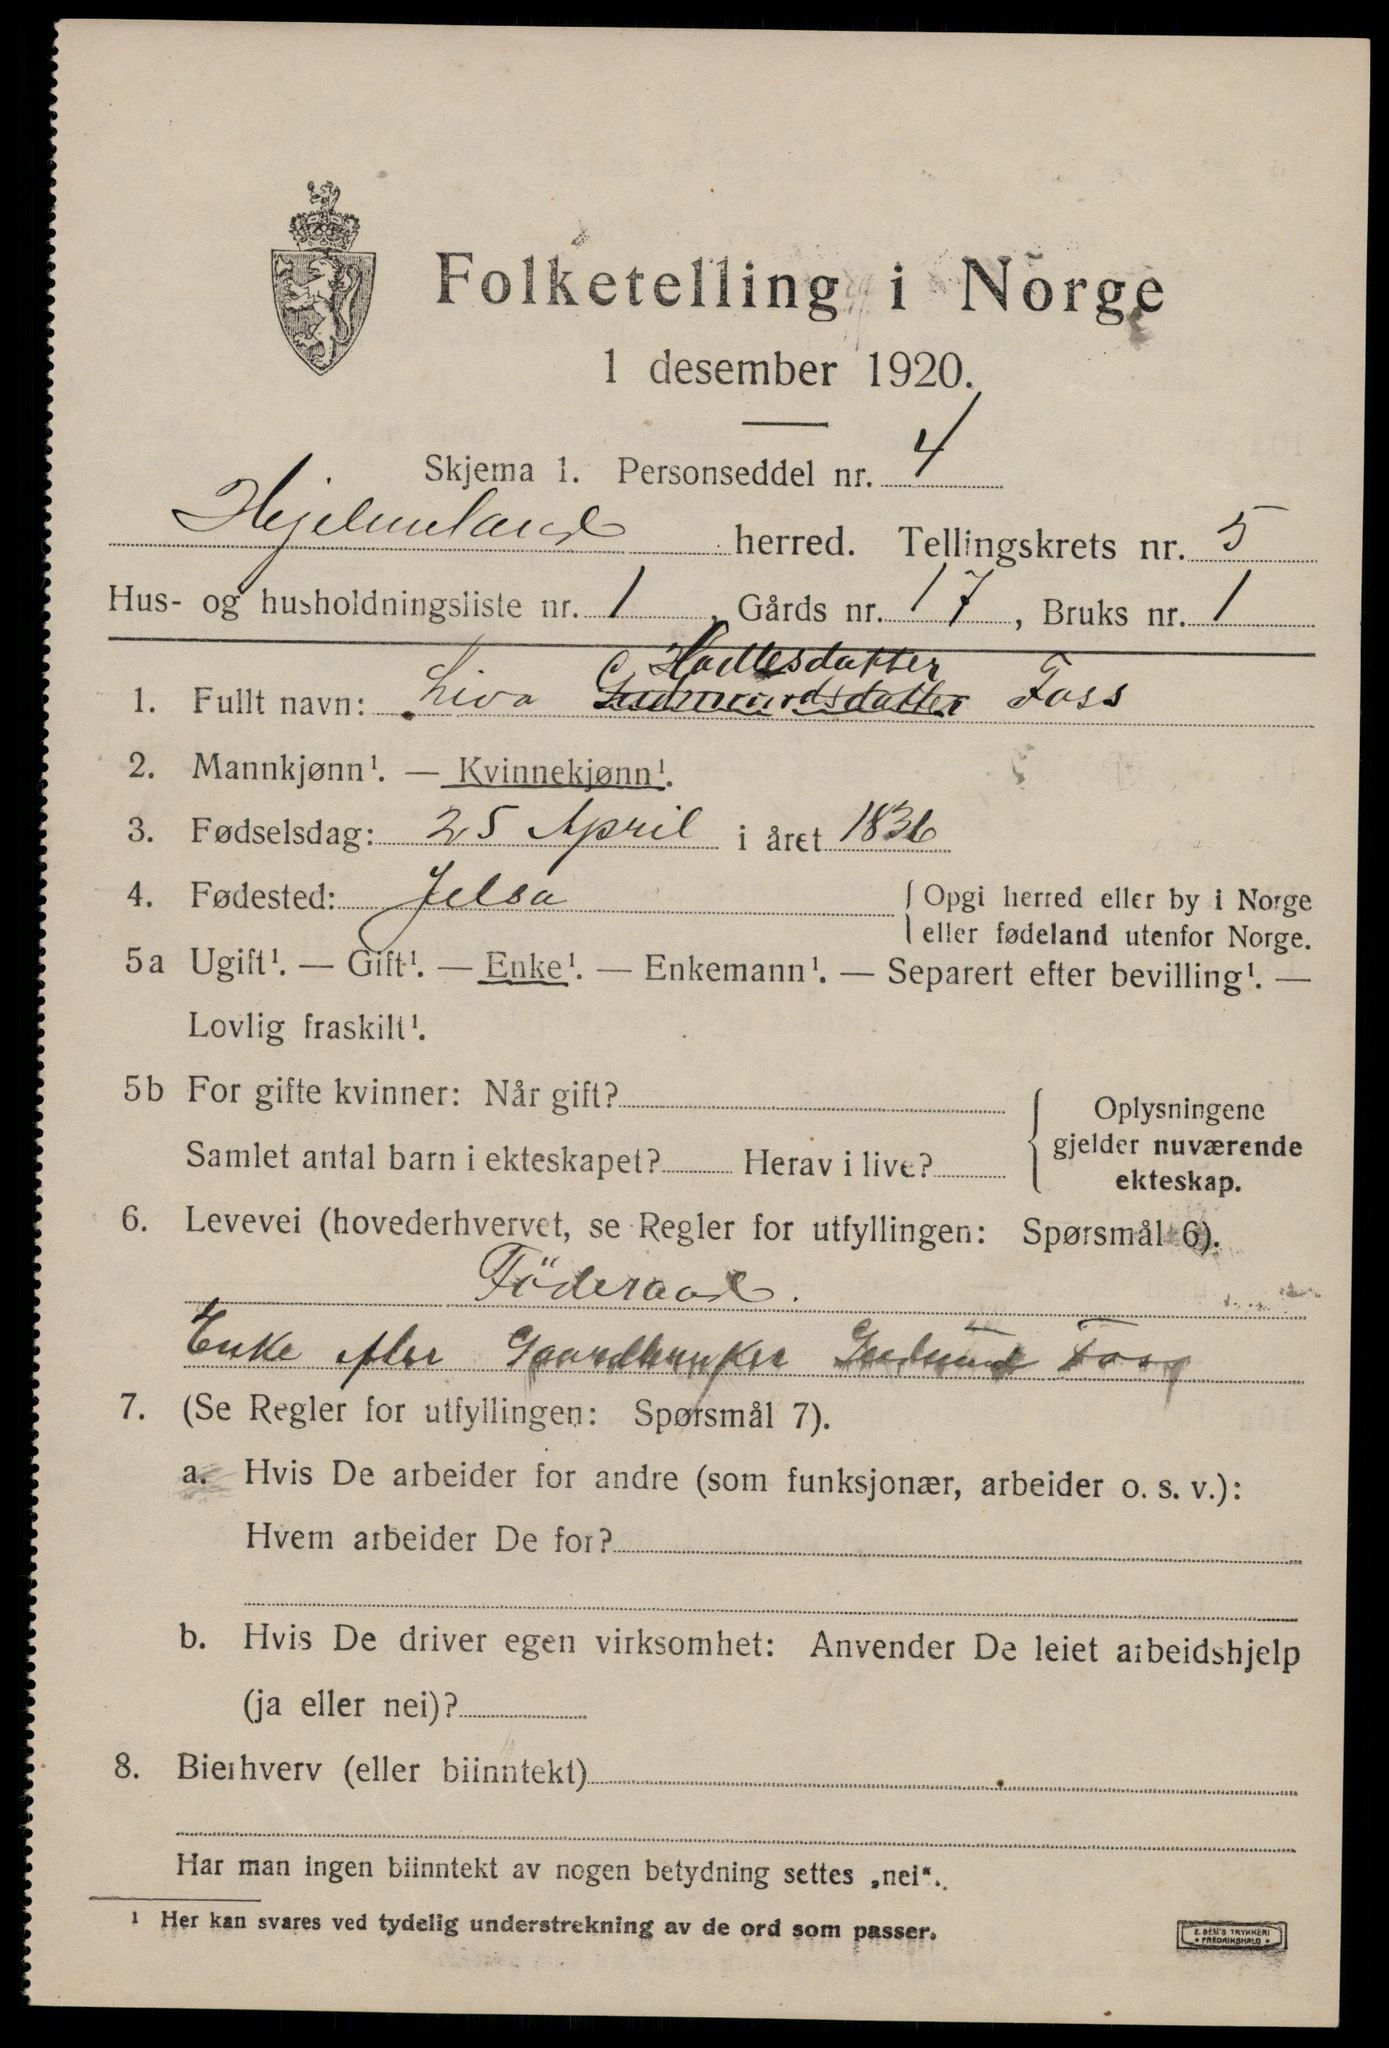 Folketelling i Norge
1 desember 1920.
Skjema 1. Personseddel nr. 4
Hjelmeland herred. Tellingskrets nr. 5
Hus- og husholdningsliste nr. 1, Gårds nr. 17, Bruks nr. 1
Hadlesdatter
1. Fullt navn: Liva Gudmundsdatter Foss
2. Mannkjønn¹. — Kvinnekjønn¹.
3. Fødselsdag: 25 April i året 1836
4. Fødested: Jelsa { Opgi herred eller by i Norge
eller fødeland utenfor Norge.
5a Ugift¹. — Gift¹. — Enke¹. — Enkemann¹. — Separert efter bevilling¹. —
Lovlig fraskilt¹.
5b For gifte kvinner: Når gift?
Samlet antal barn i ekteskapet? Herav i live?
{ Oplysningene
gjelder nuværende
ekteskap.
6. Levevei (hovederhvervet, se Regler for utfyllingen: Spørsmål 6).
Föderaad.
Enke efter Gaardbruker Gudmund Foss
7. (Se Regler for utfyllingen: Spørsmål 7).
a. Hvis De arbeider for andre (som funksjonær, arbeider o. s. v.):
Hvem arbeider De for?
b. Hvis De driver egen virksomhet: Anvender De leiet arbeidshjelp
(ja eller nei)?
8. Bierhverv (eller biinntekt)
Har man ingen biinntekt av nogen betydning settes „nei“.
¹ Her kan svares ved tydelig understrekning av de ord som passer.
E. SEM'S TRYKKERI
FREDRIKSHALD